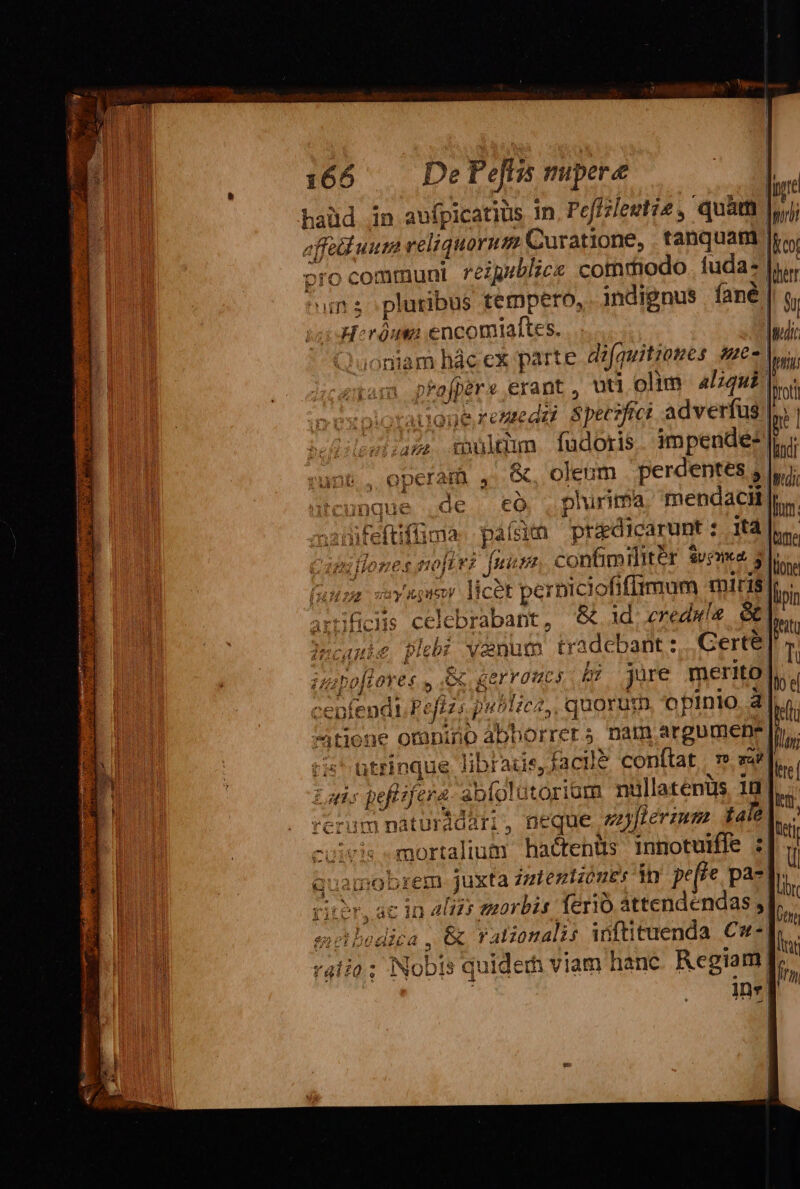 166 De Peſtis nuperæ
haùd in auſpicatiùs in Peſtilentiæ, quàm
affectuum reliquorum Curatione, tanquam
pro communi reipublicæ commodo ſuda-
tum; pluribus tempero, indignus ſanè
Heróum encomiaſtes.
Quoniam hâc ex parte diſquitiones
proſperæ erant, uti olìm aliqui
in exploratione remedii Specifici adverſus
peſtilentiam multùm ſudoris impende-
runt, operam, &, oleum perdentes,
utcunque de eò plurima mendacia
manifeſtiſſima paſsìm prædicarunt: ità
noſtri ſuum, conſimilitèr
ſuum licèt pernicioſiſſimum miris
artificiis celebrabant, & id credulæ &
incautæ plebi vænum tradebant: Certè
impoſtores, & gerrones hi jùre meritò
cenſendi Peſtis publicæ, quorum opinio à
ratione omninò abhorret; nam argumen-
tis utrinque libratis, facilè conſtat
Luis peſtiferæ abſolutorium nullatenùs in
rerum naturâ dari, neque myſterium tale
cuivis mortalium hactenùs innotuiſſe:
quamobrem juxta intentiones in peſte pa-
ritèr, ac in aliis morbis ſeriò attendendas,
methodica, & rationalis inſtituenda Cu-
ratio: Nobis quidem viam hanc Regiam
in-